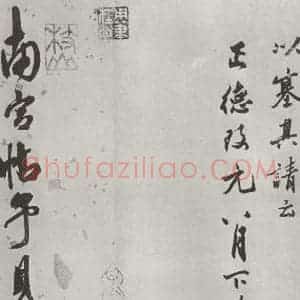 以塞其請云
正德改元八月下
南宫帖予見
Shufaziliao.com